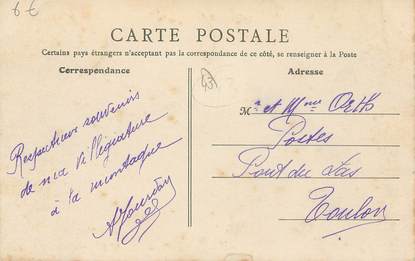 6 €
CARTE POSTALE
Certains pays étrangers n'acceptant pas la correspondance de ce côté, se renseigner à la Poste
Correspondance
Adresse
Respectueux souvenirs
de ma villégiature
à la montagne
M r et Mme Orth
Postes
Pont du Las
Toulon